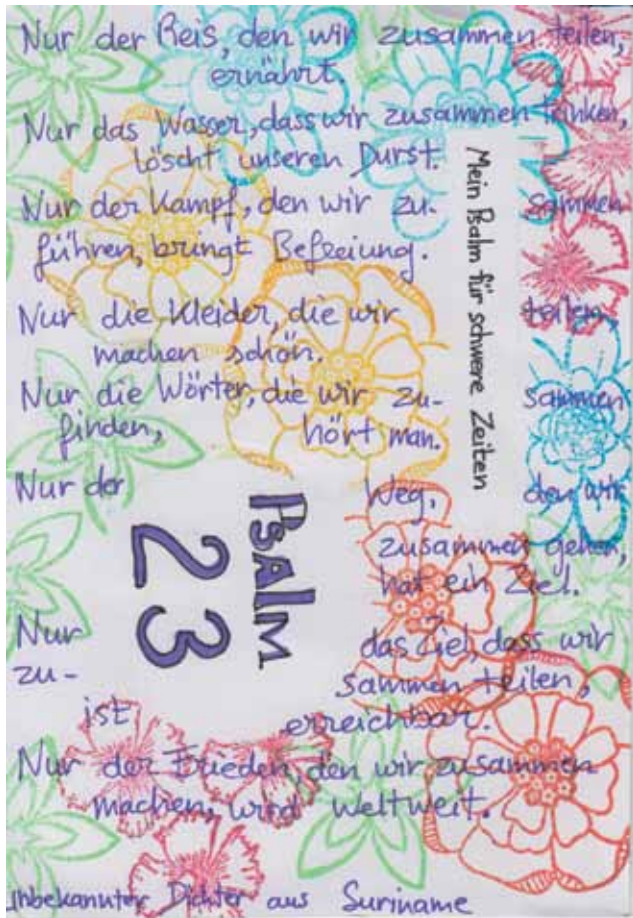 Nur der Reis, den wir zusammen teilen,
ernährt.
Nur das Wasser, dass wir zusammen trinken,
löscht unseren Durst.
Nur der Kampf, den wir zu- sammen
führen, bringt Befreiung.
Nur die Kleider, die wir teilen,
machen schön.
Nur die Wörter, die wir zu- sammen
finden, hört man.
Nur der Weg, den wir
zusammen gehen,
hat ein Ziel.
Nur das Ziel, dass wir
zu- sammen teilen,
ist erreichbar.
Nur der Frieden, den wir zusammen
machen, wird weltweit.
Unbekannter Dichter aus Suriname
Mein Psalm für schwere Zeiten
Psalm
23